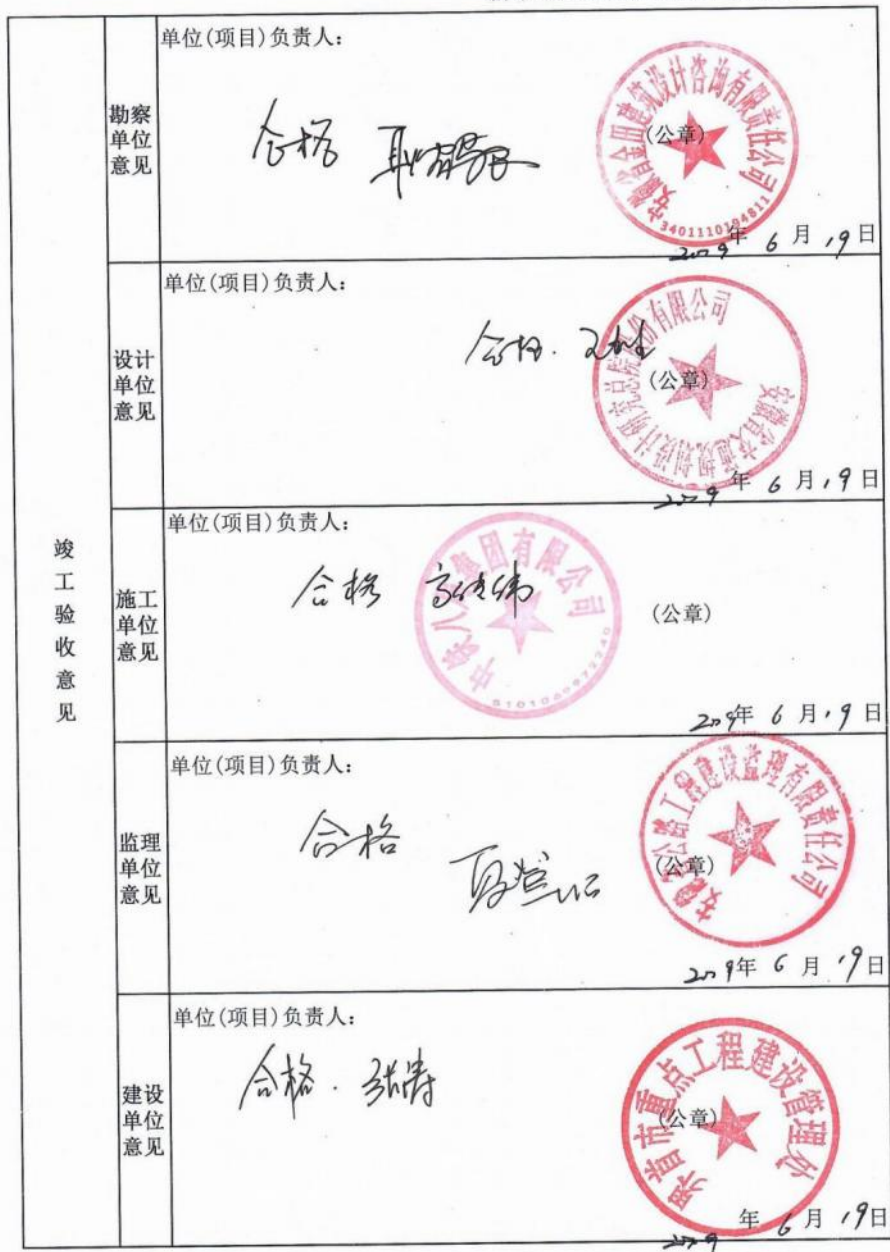 竣工验收意见
勘察单位意见
单位(项目)负责人:
合格
(公章)
安徽省金田建筑设计咨询有限责任公司
3401110194811
2019年6月19日
设计单位意见
单位(项目)负责人:
合格.
(公章)
安徽省交通规划设计研究总院股份有限公司
2019年6月19日
施工单位意见
单位(项目)负责人:
合格
(公章)
中铁八局集团有限公司
2019年6月19日
监理单位意见
单位(项目)负责人:
合格
(公章)
安徽省公路工程建设监理有限责任公司
2019年6月19日
建设单位意见
单位(项目)负责人:
合格. 张涛
(公章)
界首市重点工程建设管理处
2019年6月19日